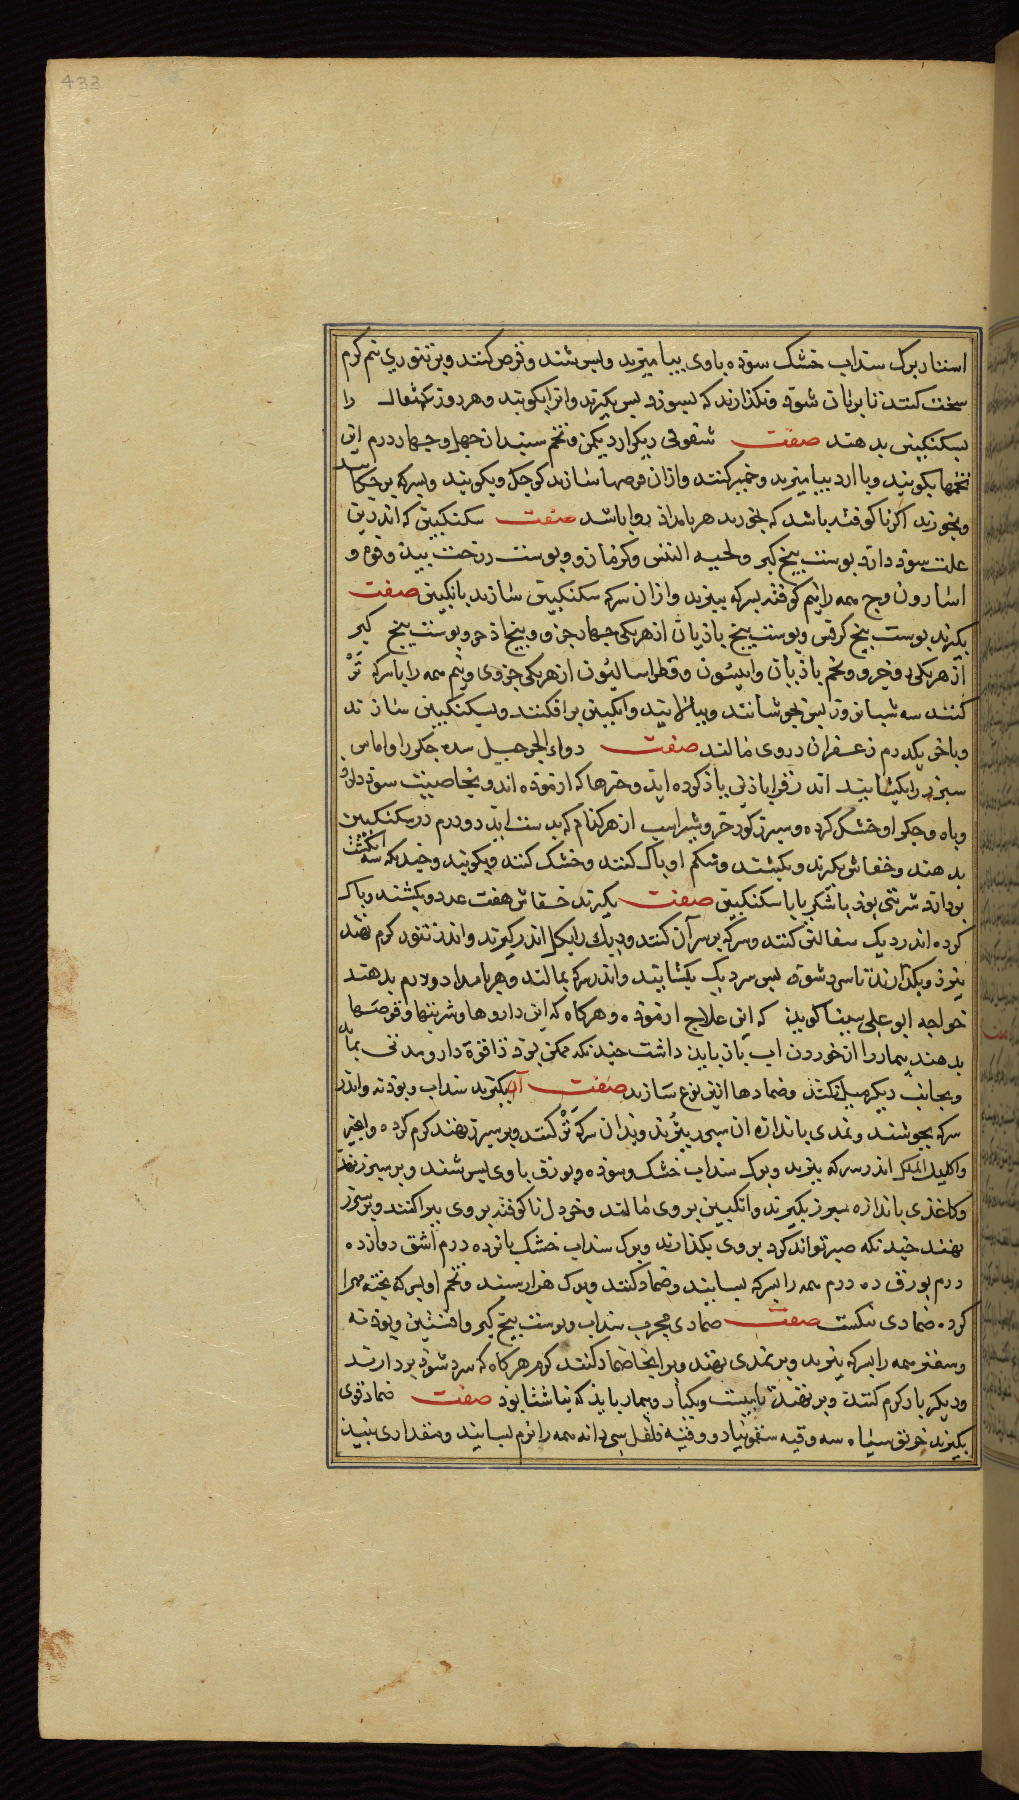 433
استار برک سنداب خشک سوده باوی بیامیزند وبسرشند وقرص کنند وبر تنوری نیم کرم
سخت کنند تا بریان شود ونکذارند که بسوزد بس بکیرند وانرا بکوبند وهر روز یکمثقال را
بسکنکبین بدهند صفت سفوفی دیکر ارد یکمن وتخم سپندان چهل وچهار درم این
تخمها بکوبند وبا ارد بیامیزند وخمیر کنند وازان قرصها سازند کوچک وبکوبند وبسرکه
وبخورند اکر ناکوفته باشد که بخورند هر بامداد روا باشد صفت سکنکبین که اندرین
علت سود دارد بوست بیخ کبر ولحیه التیس وکزمازو وبوست درخت بید وفوه و
اسارون وج همه را نیم کوفته بسرکه ببزند وازان سرکه سکنکبین سازند بانکبین صفت
بکیرند بوست بیخ کرفس وبوست بیخ بادیان از هر یکی چهار جزو وبیخ اذخر وبوست بیخ کبر
از هر یکی دو جزو وتخم بادیان وانیسون وقطراسالیون از هر یکی جزوی ونیم همه را با سرکه تر
کنند سه شبانروز بس بجوشانند وببالایند وانکبین برافکنند وبسکنکبین سازند
وباخر یکدرم زعفران دروی مالند صفت دواء الجرجیل سده جکر را واماس
سبرز را بکشاید اندر قراباذین یاد کرده اید وچیزها که ازموده اند وبخاصیت سود دارد
وباه وجکر او خشک کرده وسبرز کور خر وشیر اسب از هر کدام که بدست اید دو درم در سکنکبین
بدهند وخفاش بکیرند وبکشند وشکم او باک کنند وخشک کنند وبکوبند وچندانکه سه انکشت
بردارد شربتی بود با شکر یا با سکنکبین صفت بکیرند خفاش هفت عدد وبکشند وباک
کرده اندر دیک سفالین کنند وسرکه بر سر آن کنند ودیک را بکل اندر کیرند واندر تنور کرم نهند
بنزد وبکذارند تا سرد شود بس سر دیک بکشایند واندر سرکه بمالند وهر بامداد دو درم بدهند
خواجه ابو علی سینا کوید که این علاج ازموده وهرکاه که این داروها وشربتها وقرصها
بدهند بیمار را از خوردن اب باز باید داشت چندانکه ممکن بود تا قوة دارو مدتی بماند
وبجانب دیکر میل نکند وضمادها ازین نوع سازند صفت آن بکیرند سنداب وبودنه واندر
سرکه بجوشند ونمدی باندازه ان سبرز ببرند وبدان سرکه تر کنند وبر سبرز نهند کرم کرده وانجیر
واکلیل الملک اندر سرکه ببزند وبرک سنداب خشک وسوده وبورق باوی بسرشند وبر سبرز نهند
وکاغذی باندازه سبرز بکیرند وانکبین بروی مالند وخردل ناکوفته بروی ببراکنند وبر سبرز
نهند چندانکه صبر تواند کرد بروی بکذارند وبرک سنداب خشک بانزده درم اشق دوازده
درم بورق ده درم همه را بسرکه بسایند وضماد کنند وبرک هزار سپند وتخم او بسرکه بخته مهرا
کرده ضمادی نیکست صفت ضمادی مجرب سنداب وبوست بیخ کبر وافسنتین وبودنه
وسعتر همه را بسرکه ببزند وبر نمدی نهند وبر انجا ضماد کنند کرم هرکاه که سرد شود بردارند
ودیکر بار کرم کنند وبر نهند تا بیست ویکبار وبیمار باید که ناشتا بود صفت ضماد قوی
بکیرند خربق سیاه سه وقیه سقمونیا دو وقیه فلفل سی دانه همه را نرم بسایند ومقداری نبید